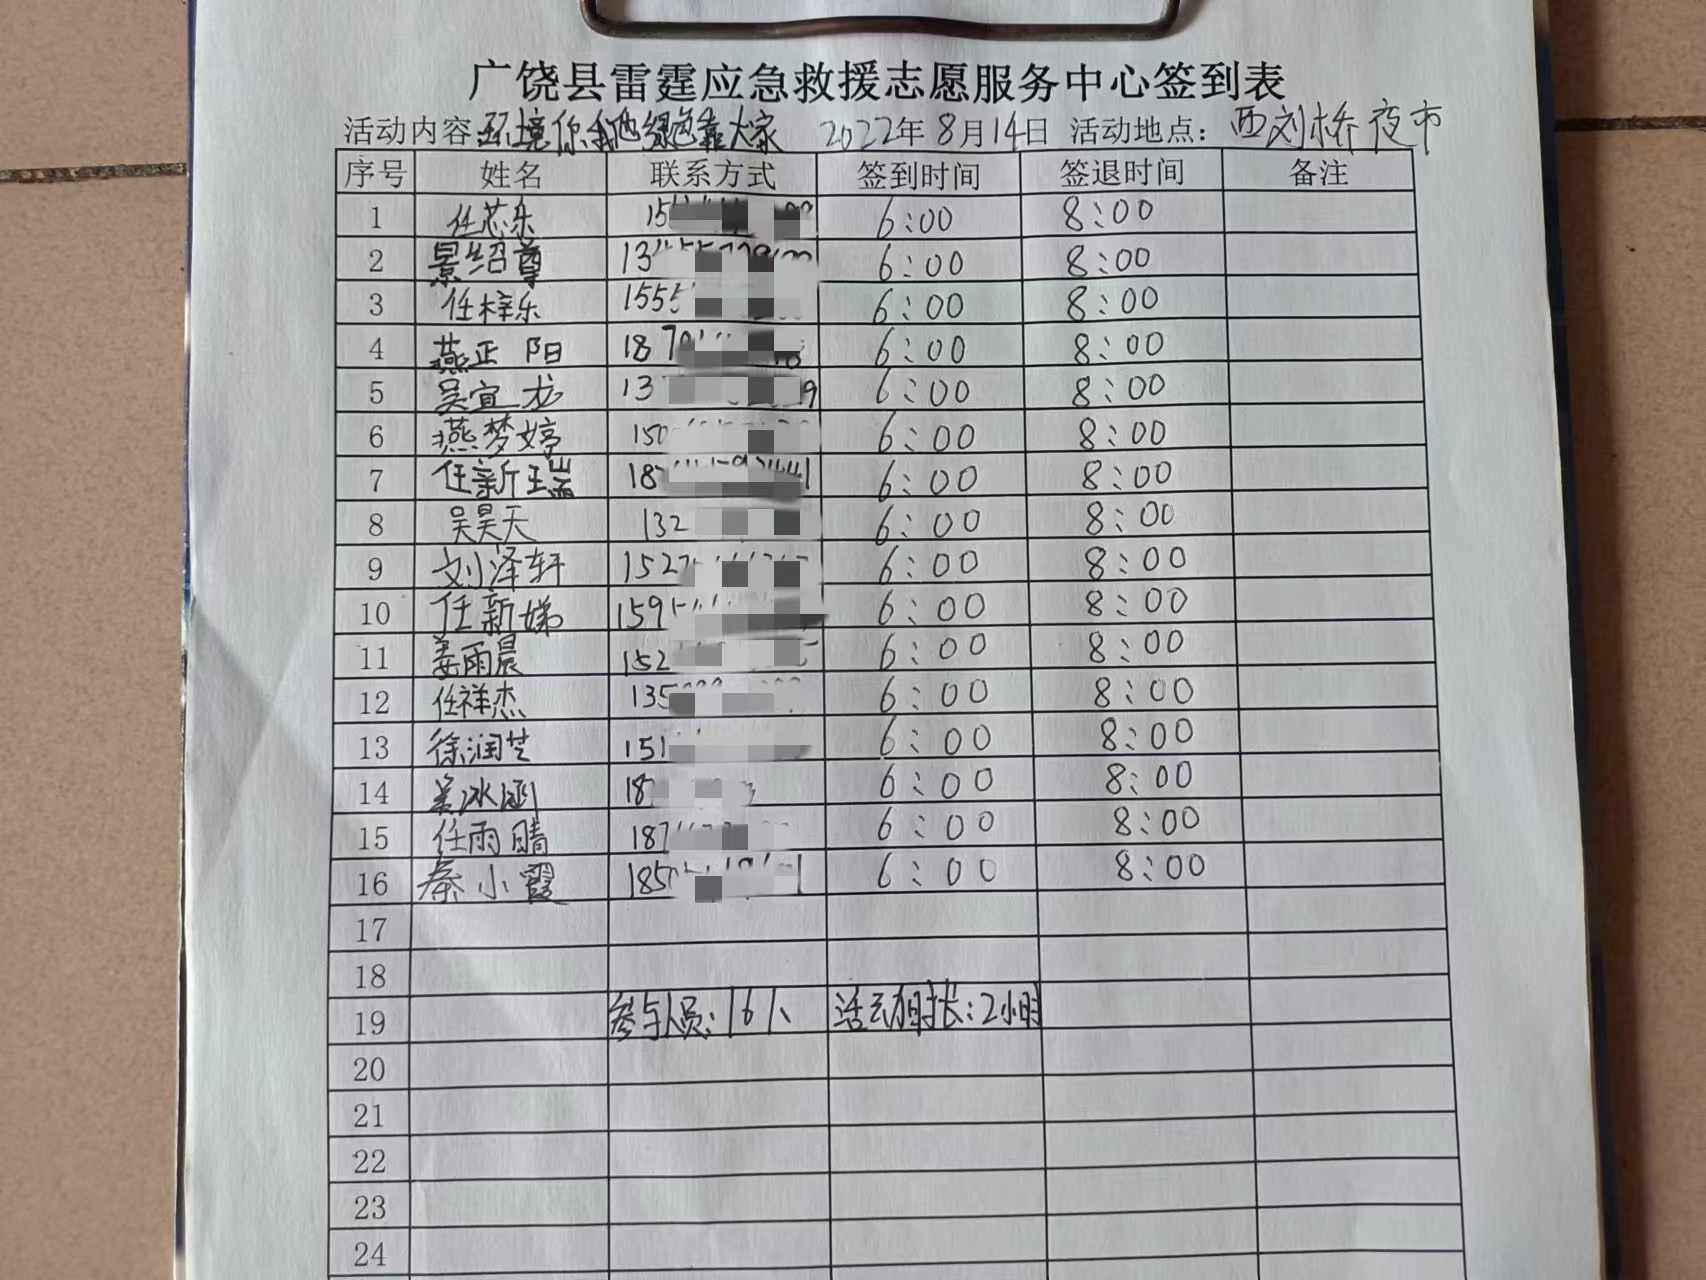 广饶县雷霆应急救援志愿服务中心签到表
活动内容:环境你我他绿色靠大家 2022年8月14日 活动地点:西刘桥夜市
序号 姓名 联系方式 签到时间 签退时间 备注
1 任芯乐 15 6:00 8:00
2 景绍尊 134 6:00 8:00
3 任梓乐 1555 6:00 8:00
4 燕正阳 187 6:00 8:00
5 吴宜龙 13 9 6:00 8:00
6 燕梦婷 150 6:00 8:00
7 任新瑞 18 6:00 8:00
8 吴昊天 132 6:00 8:00
9 刘泽轩 1527 6:00 8:00
10 任新娣 159 6:00 8:00
11 姜雨晨 152 6:00 8:00
12 任祥杰 135 6:00 8:00
13 徐润芝 151 6:00 8:00
14 冰涵 18 6:00 8:00
15 任雨晴 187 6:00 8:00
16 秦小霞 185 6:00 8:00
17
18
19 参与人员:16人 活动时长:2小时
20
21
22
23
24